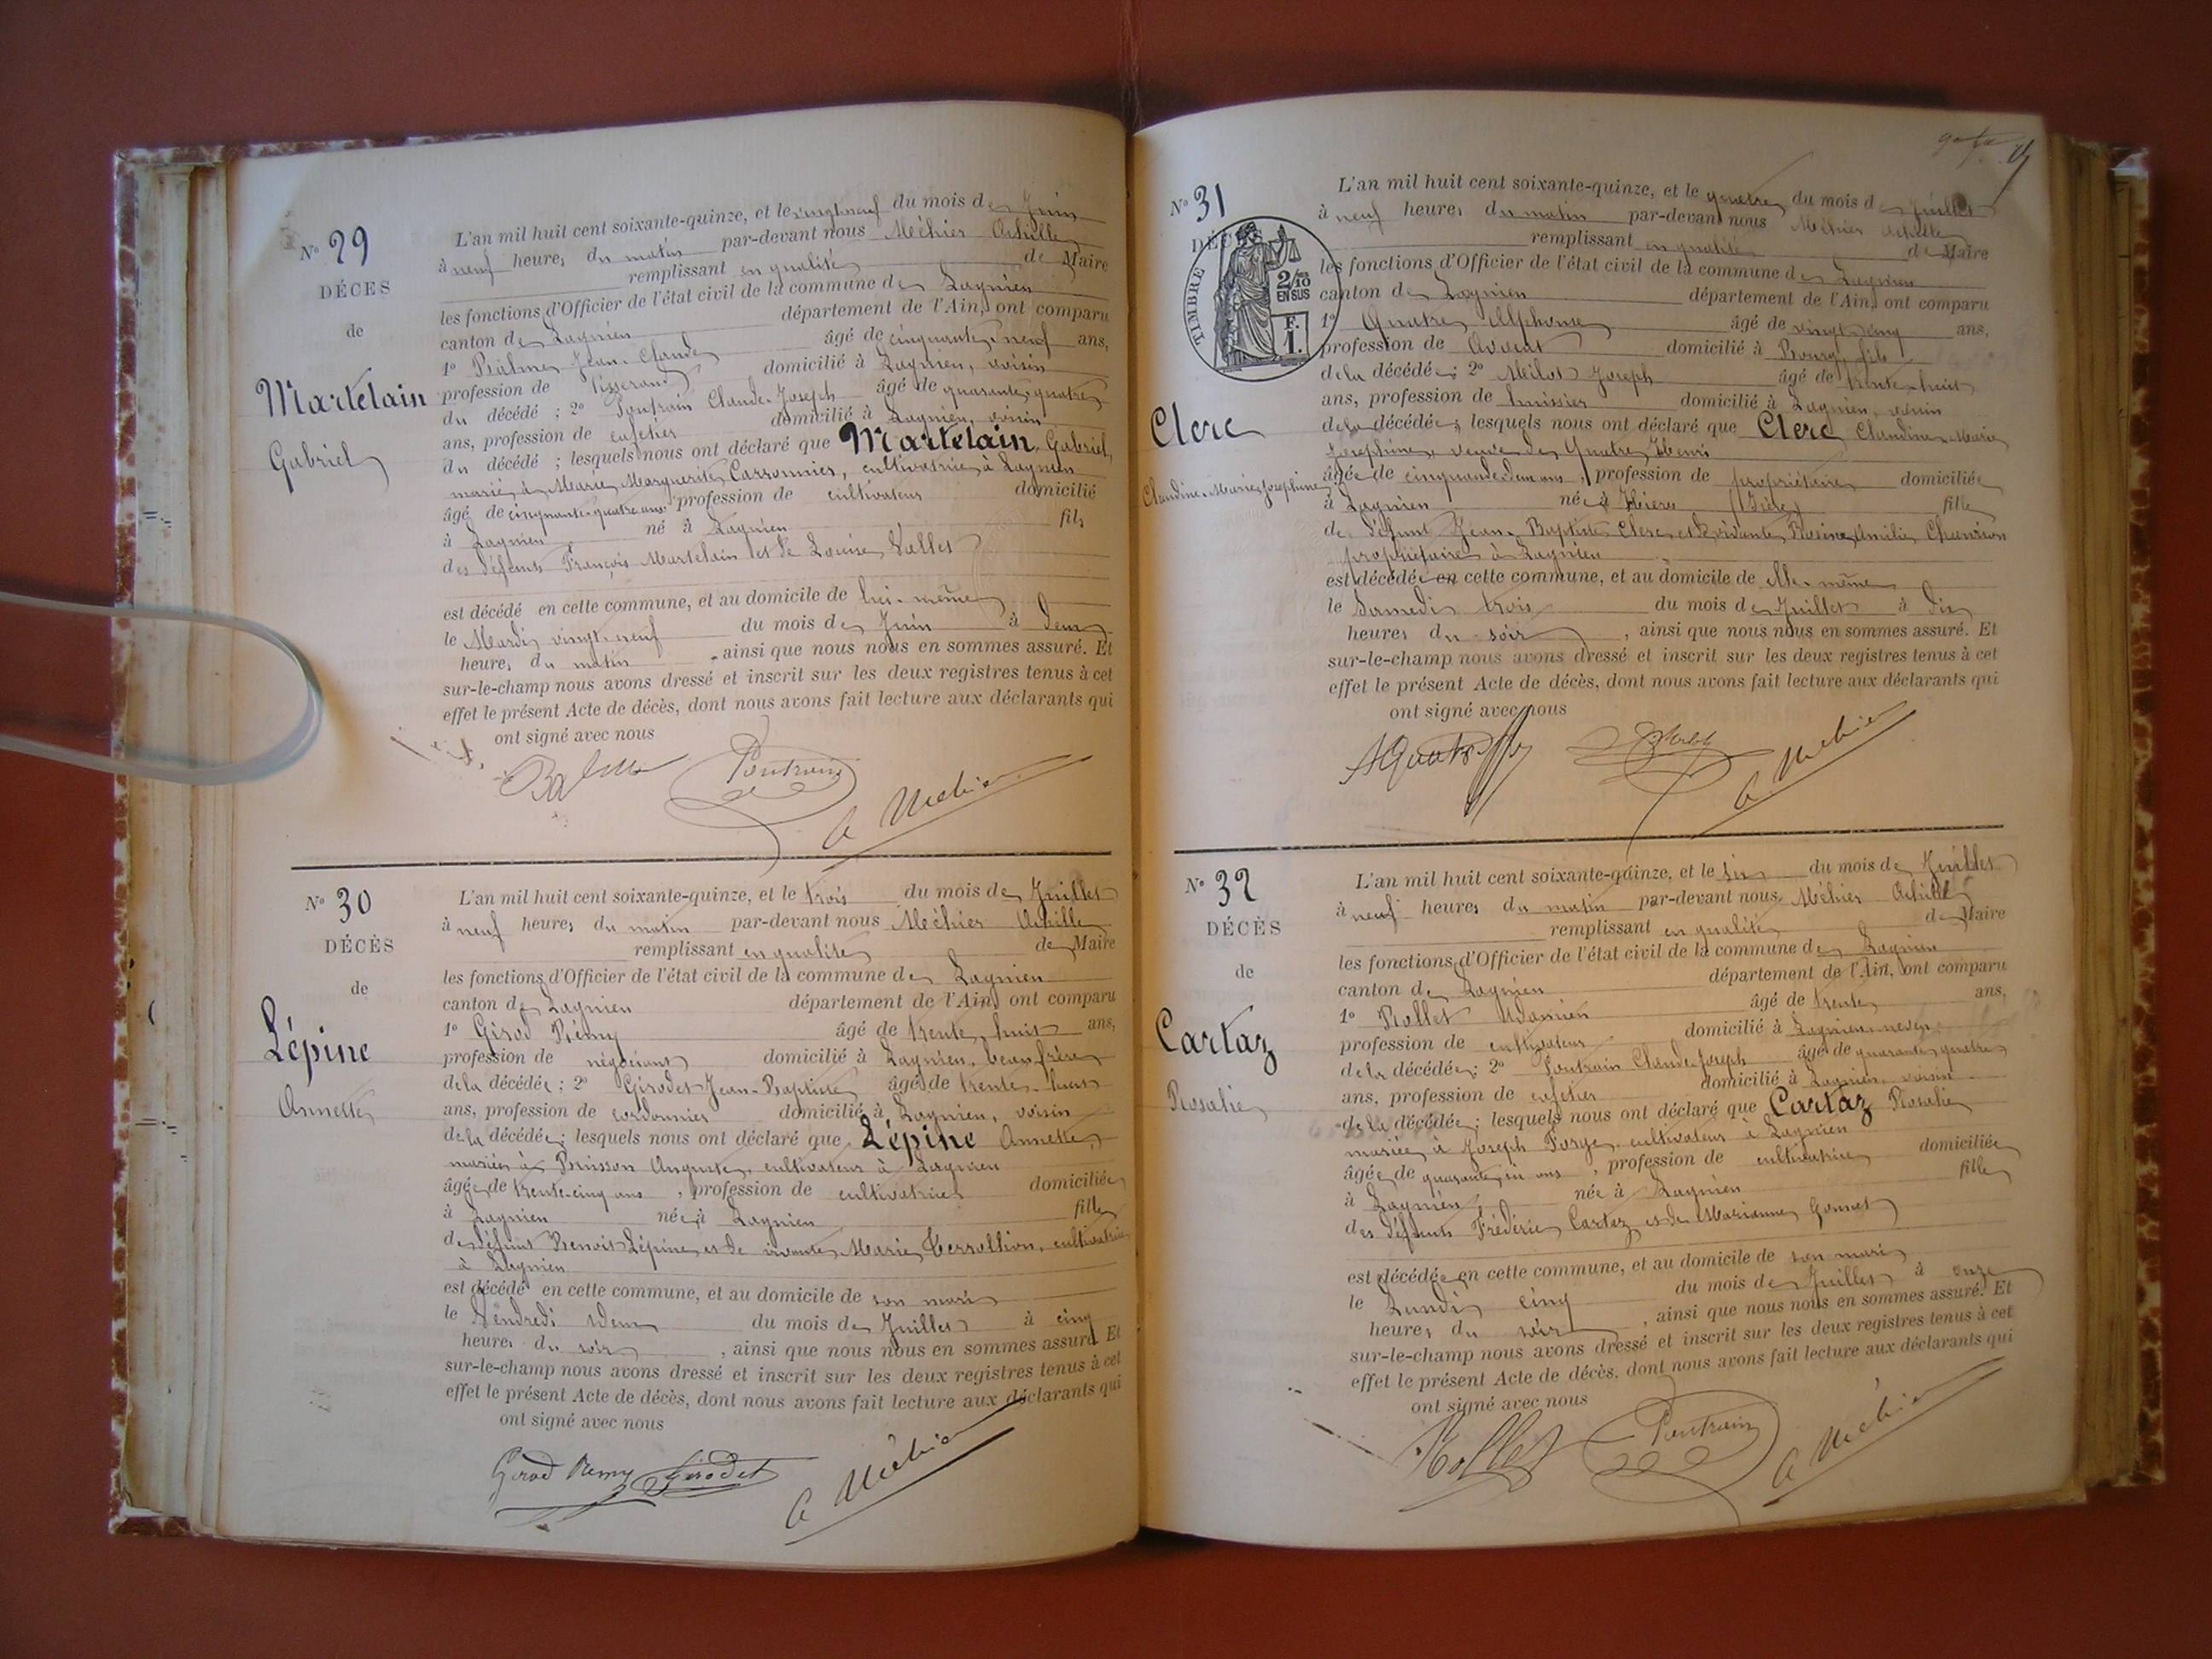 N° 29
DÉCÈS
de
Martelain
Gabriel
L'an mil huit cent soixante-quinze, et le vingt neuf du mois de Juin
à neuf heures du matin par-devant nous Méhier Achille
remplissant en qualité de Maire
les fonctions d'Officier de l'état civil de la commune de Lagnieu
canton de Lagnieu département de l'Ain, ont comparu
1° Jean-Claude âgé de cinquante-neuf ans,
profession de Tisserand domicilié à Lagnieu, voisin
du décédé ; 2° Poutrain Claude-Joseph âgé de quarante-quatre
ans, profession de cafetier domicilié à Lagnieu, voisin
du décédé ; lesquels nous ont déclaré que Martelain Gabriel,
marié à Marie Marguerite Carronnier, cultivatrice à Lagnieu
âgé de cinquante-quatre ans profession de cultivateur domicilié
à Lagnieu né à Lagnieu fils
des défunts François Martelain et de Louise Vallet
est décédé en cette commune, et au domicile de lui-même
le Mardi vingt-neuf du mois de Juin à deux
heures du matin, ainsi que nous nous en sommes assuré. Et
sur-le-champ nous avons dressé et inscrit sur les deux registres tenus à cet
effet le présent Acte de décès, dont nous avons fait lecture aux déclarants qui
ont signé avec nous
Poutrain
A Méhier
N° 30
DÉCÈS
de
Lépine
Annette
L'an mil huit cent soixante-quinze, et le trois du mois de Juillet
à neuf heures du matin par-devant nous Méhier Achille
remplissant en qualité de Maire
les fonctions d'Officier de l'état civil de la commune de Lagnieu
canton de Lagnieu département de l'Ain, ont comparu
1° Girod Rémy âgé de trente-huit ans,
profession de négociant domicilié à Lagnieu, beau frère
de la décédée ; 2° Girodet Jean-Baptiste âgé de trente-huit
ans, profession de cordonnier domicilié à Lagnieu, voisin
de la décédée ; lesquels nous ont déclaré que Lépine Annette,
mariée à Buisson Auguste, cultivateur à Lagnieu
âgée de trente-cinq ans, profession de cultivatrice domiciliée
à Lagnieu née à Lagnieu fille
de défunt Benoit Lépine et de vivante Marie Verrollion, cultivatrice
à Lagnieu
est décédé en cette commune, et au domicile de son mari
le Vendredi deux du mois de Juillet à cinq
heures du soir, ainsi que nous nous en sommes assuré. Et
sur-le-champ nous avons dressé et inscrit sur les deux registres tenus à cet
effet le présent Acte de décès, dont nous avons fait lecture aux déclarants qui
ont signé avec nous
Girod Remy Girodet
A Méhier
N° 31
DÉCÈS
TIMBRE
2/10
EN SUS
F.
1.
Clerc
Claudine-Marie Josephine
L'an mil huit cent soixante-quinze, et le quatre du mois de Juillet
à neuf heures du matin par-devant nous Méhier Achille
remplissant en qualité de Maire
les fonctions d'Officier de l'état civil de la commune de Lagnieu
canton de Lagnieu département de l'Ain, ont comparu
1° Quatre Alphonse âgé de vingt-cinq ans,
profession de Avocat domicilié à Bourg, fils
de la décédée ; 2° Milot Joseph âgé de trente-huit
ans, profession de huissier domicilié à Lagnieu, voisin
de la décédée ; lesquels nous ont déclaré que Clerc Claudine-Marie
Josephine, veuve de Quatre Henri
âgée de cinquante-deux ans, profession de propriétaire domiciliée
à Lagnieu née à Hières (Isère) fille
de défunt Jean-Baptiste Clerc et de vivante Rosine Amélie
propriétaire à Lagnieu
est décédée en cette commune, et au domicile de elle-même
le Samedi trois du mois de Juillet à dix
heures du soir, ainsi que nous nous en sommes assuré. Et
sur-le-champ nous avons dressé et inscrit sur les deux registres tenus à cet
effet le présent Acte de décès, dont nous avons fait lecture aux déclarants qui
ont signé avec nous
A Quatre
A Méhier
N° 32
DÉCÈS
de
Cartaz
Rosalie
L'an mil huit cent soixante-quinze, et le six du mois de Juillet
à neuf heures du matin par-devant nous Méhier Achille
remplissant en qualité de Maire
les fonctions d'Officier de l'état civil de la commune de Lagnieu
canton de Lagnieu département de l'Ain, ont comparu
1° Rollet Damien âgé de trente ans,
profession de cultivateur domicilié à Lagnieu, neveu
de la décédée ; 2° Poutrain Claude-Joseph âgé de quarante-quatre
ans, profession de cafetier domicilié à Lagnieu, voisin
de la décédée ; lesquels nous ont déclaré que Cartaz Rosalie
mariée à Joseph Forge, cultivateur à Lagnieu
âgée de quarante six ans, profession de cultivatrice domiciliée
à Lagnieu née à Lagnieu fille
des défunts Frédéric Cartaz et de Marianne Gonnet
est décédée en cette commune, et au domicile de son mari
le Lundi cinq du mois de Juillet à onze
heures du soir, ainsi que nous nous en sommes assuré. Et
sur-le-champ nous avons dressé et inscrit sur les deux registres tenus à cet
effet le présent Acte de décès, dont nous avons fait lecture aux déclarants qui
ont signé avec nous
Rollet Poutrain
A Méhier